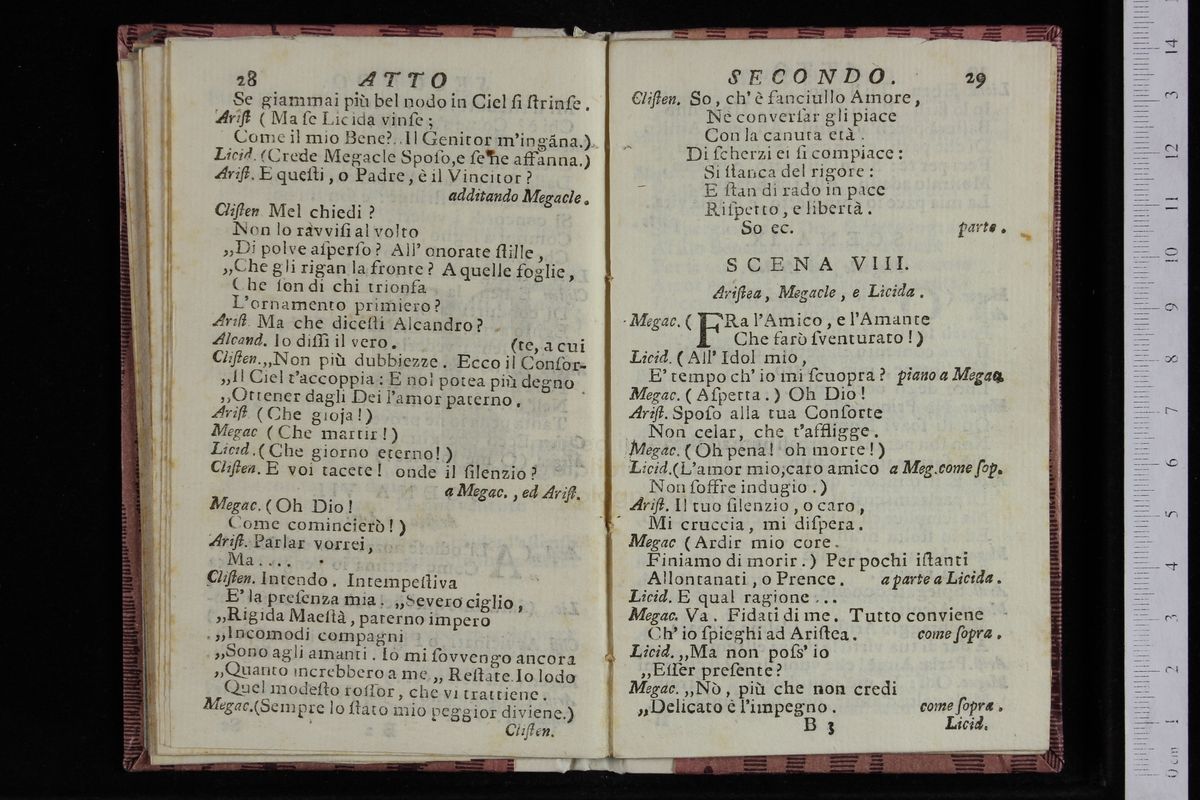 28 ATTO
Se giammai più bel nodo in Ciel ſi ſtrinſe.
Ariſt ( Ma ſe Licida vinſe ;
Come il mio Bene?.. Il Genitor m'ingãna.)
Licid. (Crede Megacle Spoſo, e ſe ne affanna.)
Ariſt. E queſti, o Padre, è il Vincitor ?
additando Megacle.
Cliſten Mel chiedi ?
Non lo ravviſi al volto
„Di polve aſperſo ? All' onorate ſtille,
„Che gli rigan la fronte ? A quelle foglie,
Che ſon di chi trionfa
L'ornamento primiero ?
Ariſt Ma che diceſti Alcandro ?
Alcand. Io diſſi il vero. (te, a cui
Cliſten. „Non più dubbiezze. Ecco il Conſor-
„Il Ciel t'accoppia : E nol potea più degno
„Ottener dagli Dei l'amor paterno.
Ariſt ( Che gioja ! )
Megac ( Che martir ! )
Licid. ( Che giorno eterno ! )
Cliſten. E voi tacete ! onde il ſilenzio ?
a Megac., ed Ariſt.
Megac. ( Oh Dio !
Come comincierò ! )
Ariſt. Parlar vorrei,
Ma . . . .
Cliſten. Intendo. Intempeſtiva
E' la preſenza mia. „Severo ciglio,
„Rigida Maeſtà, paterno impero
„Incomodi compagni
„Sono agli amanti. Io mi ſovvengo ancora
„Quanto increbbero a me „ Reſtate. Io lodo
Quel modeſto roſſor, che vi trattiene.
Megac. (Sempre lo ſtato mio peggior diviene.)
Cliſten.
SECONDO. 29
Cliſten. So, ch' è fanciullo Amore,
Ne converſar gli piace
Con la canuta età.
Di ſcherzi ei ſi compiace :
Si ſtanca del rigore :
E ſtan di rado in pace
Riſpetto, e libertà.
So ec. parte.
SCENA VIII.
Ariſtea, Megacle, e Licida.
Megac. ( FRa l'Amico, e l'Amante
Che farò ſventurato ! )
Licid. ( All' Idol mio,
E' tempo ch' io mi ſcuopra ? piano a Megac.
Megac. ( Aſpetta. ) Oh Dio !
Ariſt. Spoſo alla tua Conſorte
Non celar, che t'affligge.
Megac. ( Oh pena ! oh morte ! )
Licid. (L'amor mio, caro amico a Meg. come ſop.
Non ſoffre indugio. )
Ariſt. Il tuo ſilenzio, o caro,
Mi cruccia, mi diſpera.
Megac ( Ardir mio core.
Finiamo di morir. ) Per pochi iſtanti
Allontanati, o Prence. a parte a Licida.
Licid. E qual ragione ...
Megac. Va. Fidati di me. Tutto conviene
Ch' io ſpieghi ad Ariſtea. come ſopra.
Licid. „Ma non poſs' io
„Eſſer preſente ?
Megac. „Nò, più che non credi
„Delicato è l'impegno. come ſopra.
B 3 Licid.
0cm 1 2 3 4 5 6 7 8 9 10 11 12 13 14